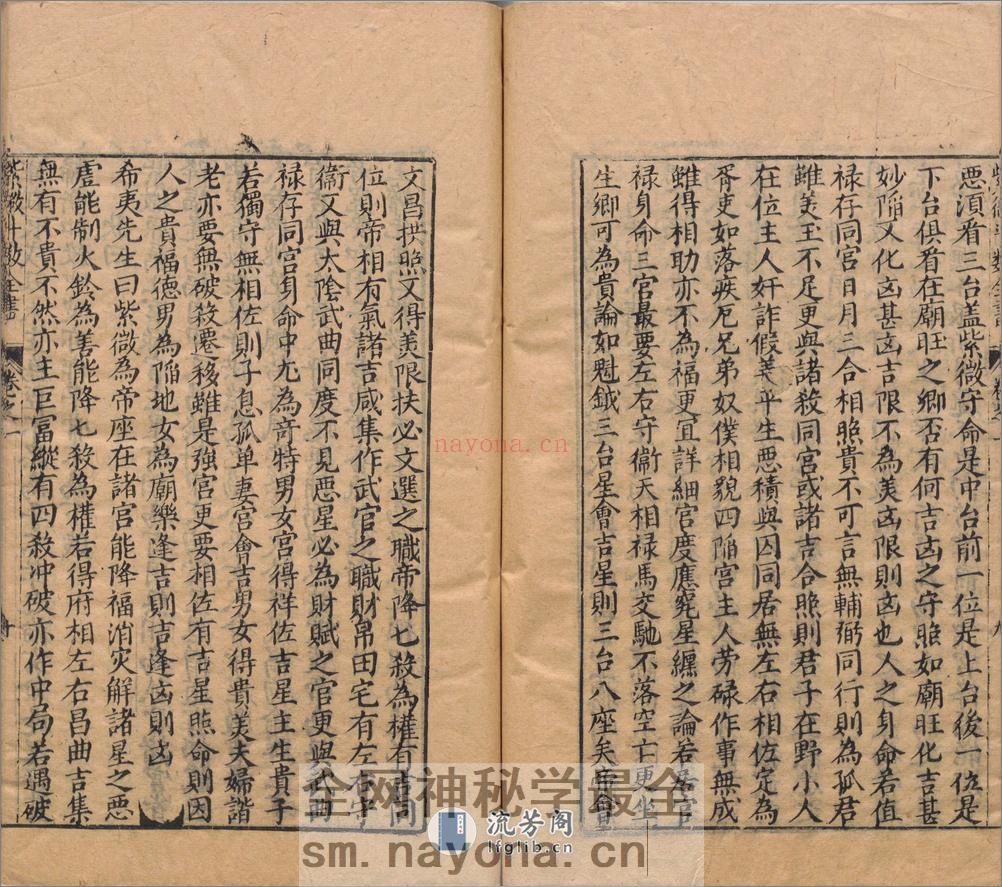 惡湏看三台盖紫微守命是中台前一位是上台後一位是
下台俱看在廟旺之鄉否有何吉凶之守照如廟旺化吉甚
妙陥又化凶甚凶吉限不為美凶限則凶也人之身命若值
禄存同宮日月三合相照貴不可言無輔弼同行則為孤君
雖美玉不足更與諸殺同宮或諸吉合照則君子在野小人
在位主人奸詐假善平生惡積與囚同居無左右相佐定為
胥吏如落疾厄兄弟奴僕相貌四陥宮主人劳碌作事無成
雖得相助亦不為福更宜詳細宮度應𨇠星纏之論若居官
禄身命三宮最要左右守衛天相禄馬交馳不落空亡更坐
生鄉可為貴論如魁鉞三台星會吉星則三台八座矣帝會
文昌拱照又得美限扶必文選之職帝降七殺為權有吉同
位則帝相有氣諸吉咸集作武官之職財帛田宅有左右守
衛又與太陰武曲同度不見惡星必為財賦之官更與武曲
禄存同宮身命中尤為奇特男女宮得祥佐吉星主生貴子
若獨守無相佐則子息孤单妻宮會吉男女得貴美夫婦諧
老亦要無破殺遷移雖是强宮更要相佐有吉星照命則因
人之貴福德男為陥地女為廟樂逢吉則吉逢凶則凶
希夷先生曰紫微為帝座在諸宮能降福消灾解諸星之惡
虛能制火鈴為善能降七殺為權若得府相左右昌曲吉集
無有不貴不然亦主巨冨縱有四殺冲破亦作中局若遇破
紫微斗数全書 卷之一
nayona.cn
全网神秘学最全
sm.nayona.cn
流芳阁
lfglib.cn